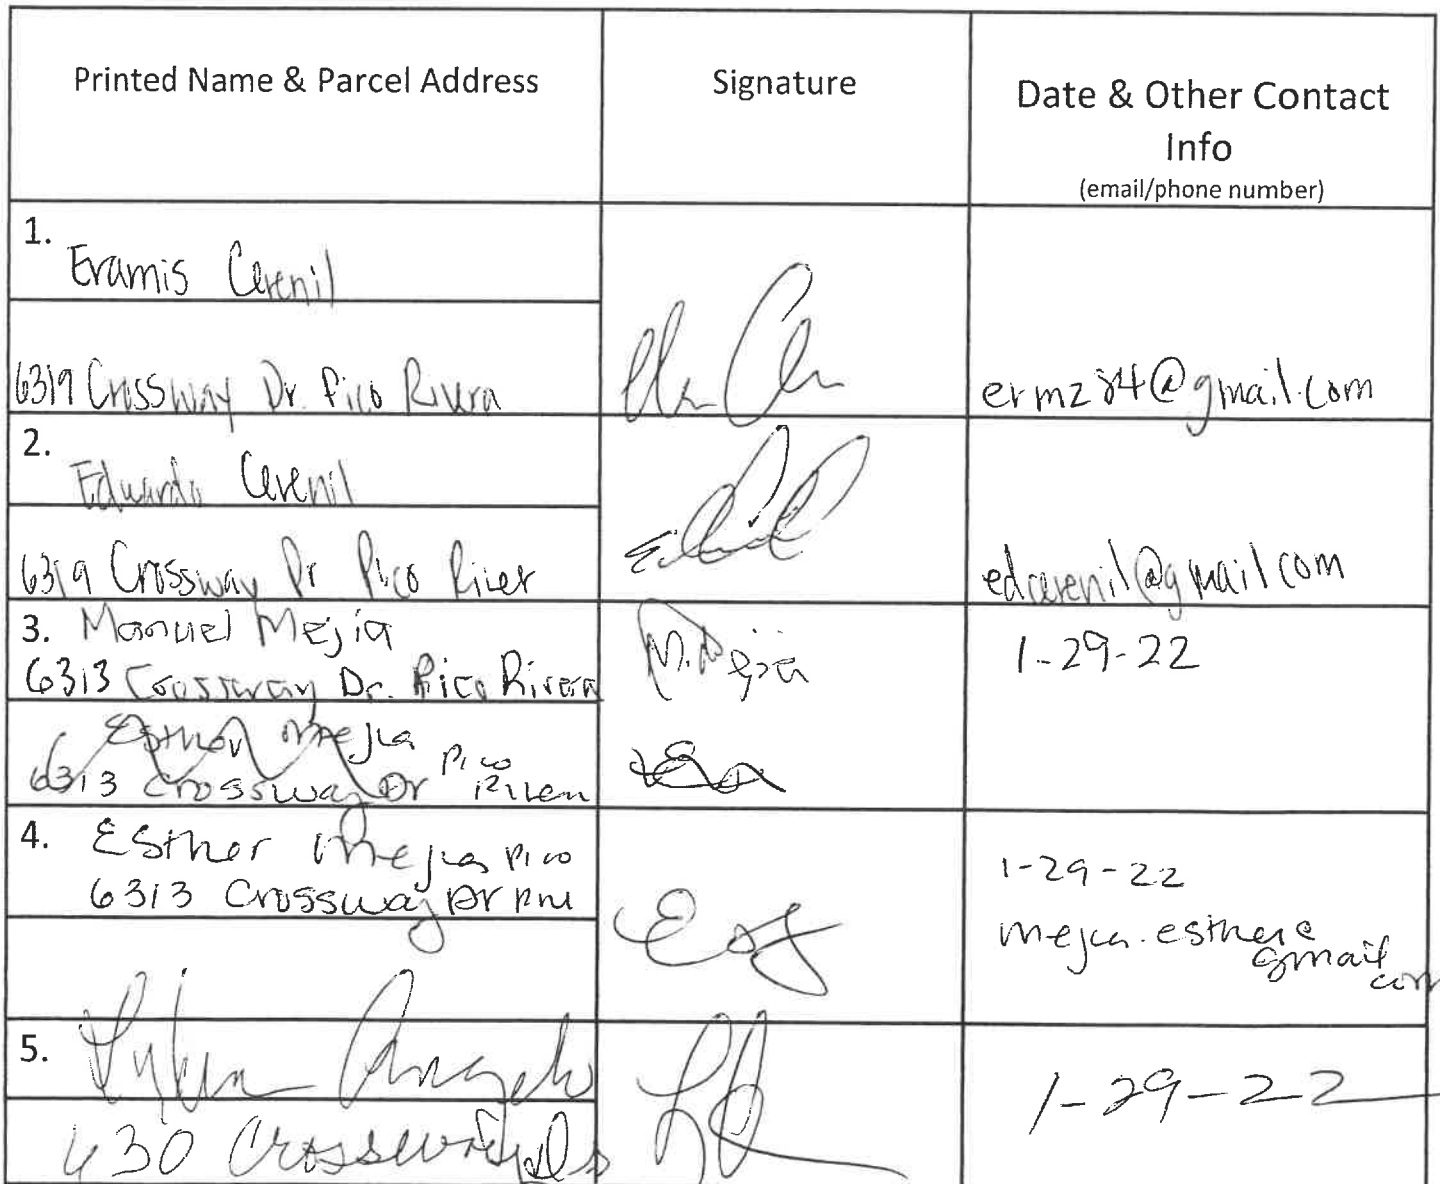 Printed Name & Parcel Address
Signature
Date & Other Contact
Info
(email/phone number)
1.
Eramis Cerenil
6319 Crossway Dr. Pico Rivera
ermz84@gmail.com
2.
Eduardo Cerenil
6319 Crossway Dr Pico River
edcerenil@gmail.com
3. Manuel Mejia
6313 Crossway Dr. Pico Rivera
M. Mejia
1-29-22
Esther Mejia
6313 Crossway Dr Pico
4. Esther Mejia Pico
6313 Crossway Dr
1-29-22
mejia.esther@
gmail
com
5.
1-29-22
630 Crossway